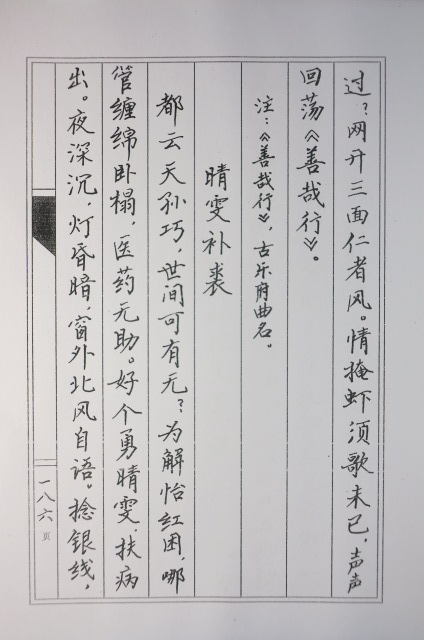 过？网开三面仁者风。情掩虾须歌未已，声声
回荡《善哉行》。
注：《善哉行》，古乐府曲名。
晴雯补裘
都云天孙巧，世间可有无？为解怡红困，哪
管缠绵卧榻，医药无助。好个勇晴雯，扶病
出。夜深沉，灯昏暗，窗外北风自语。捻银线，
一八六页